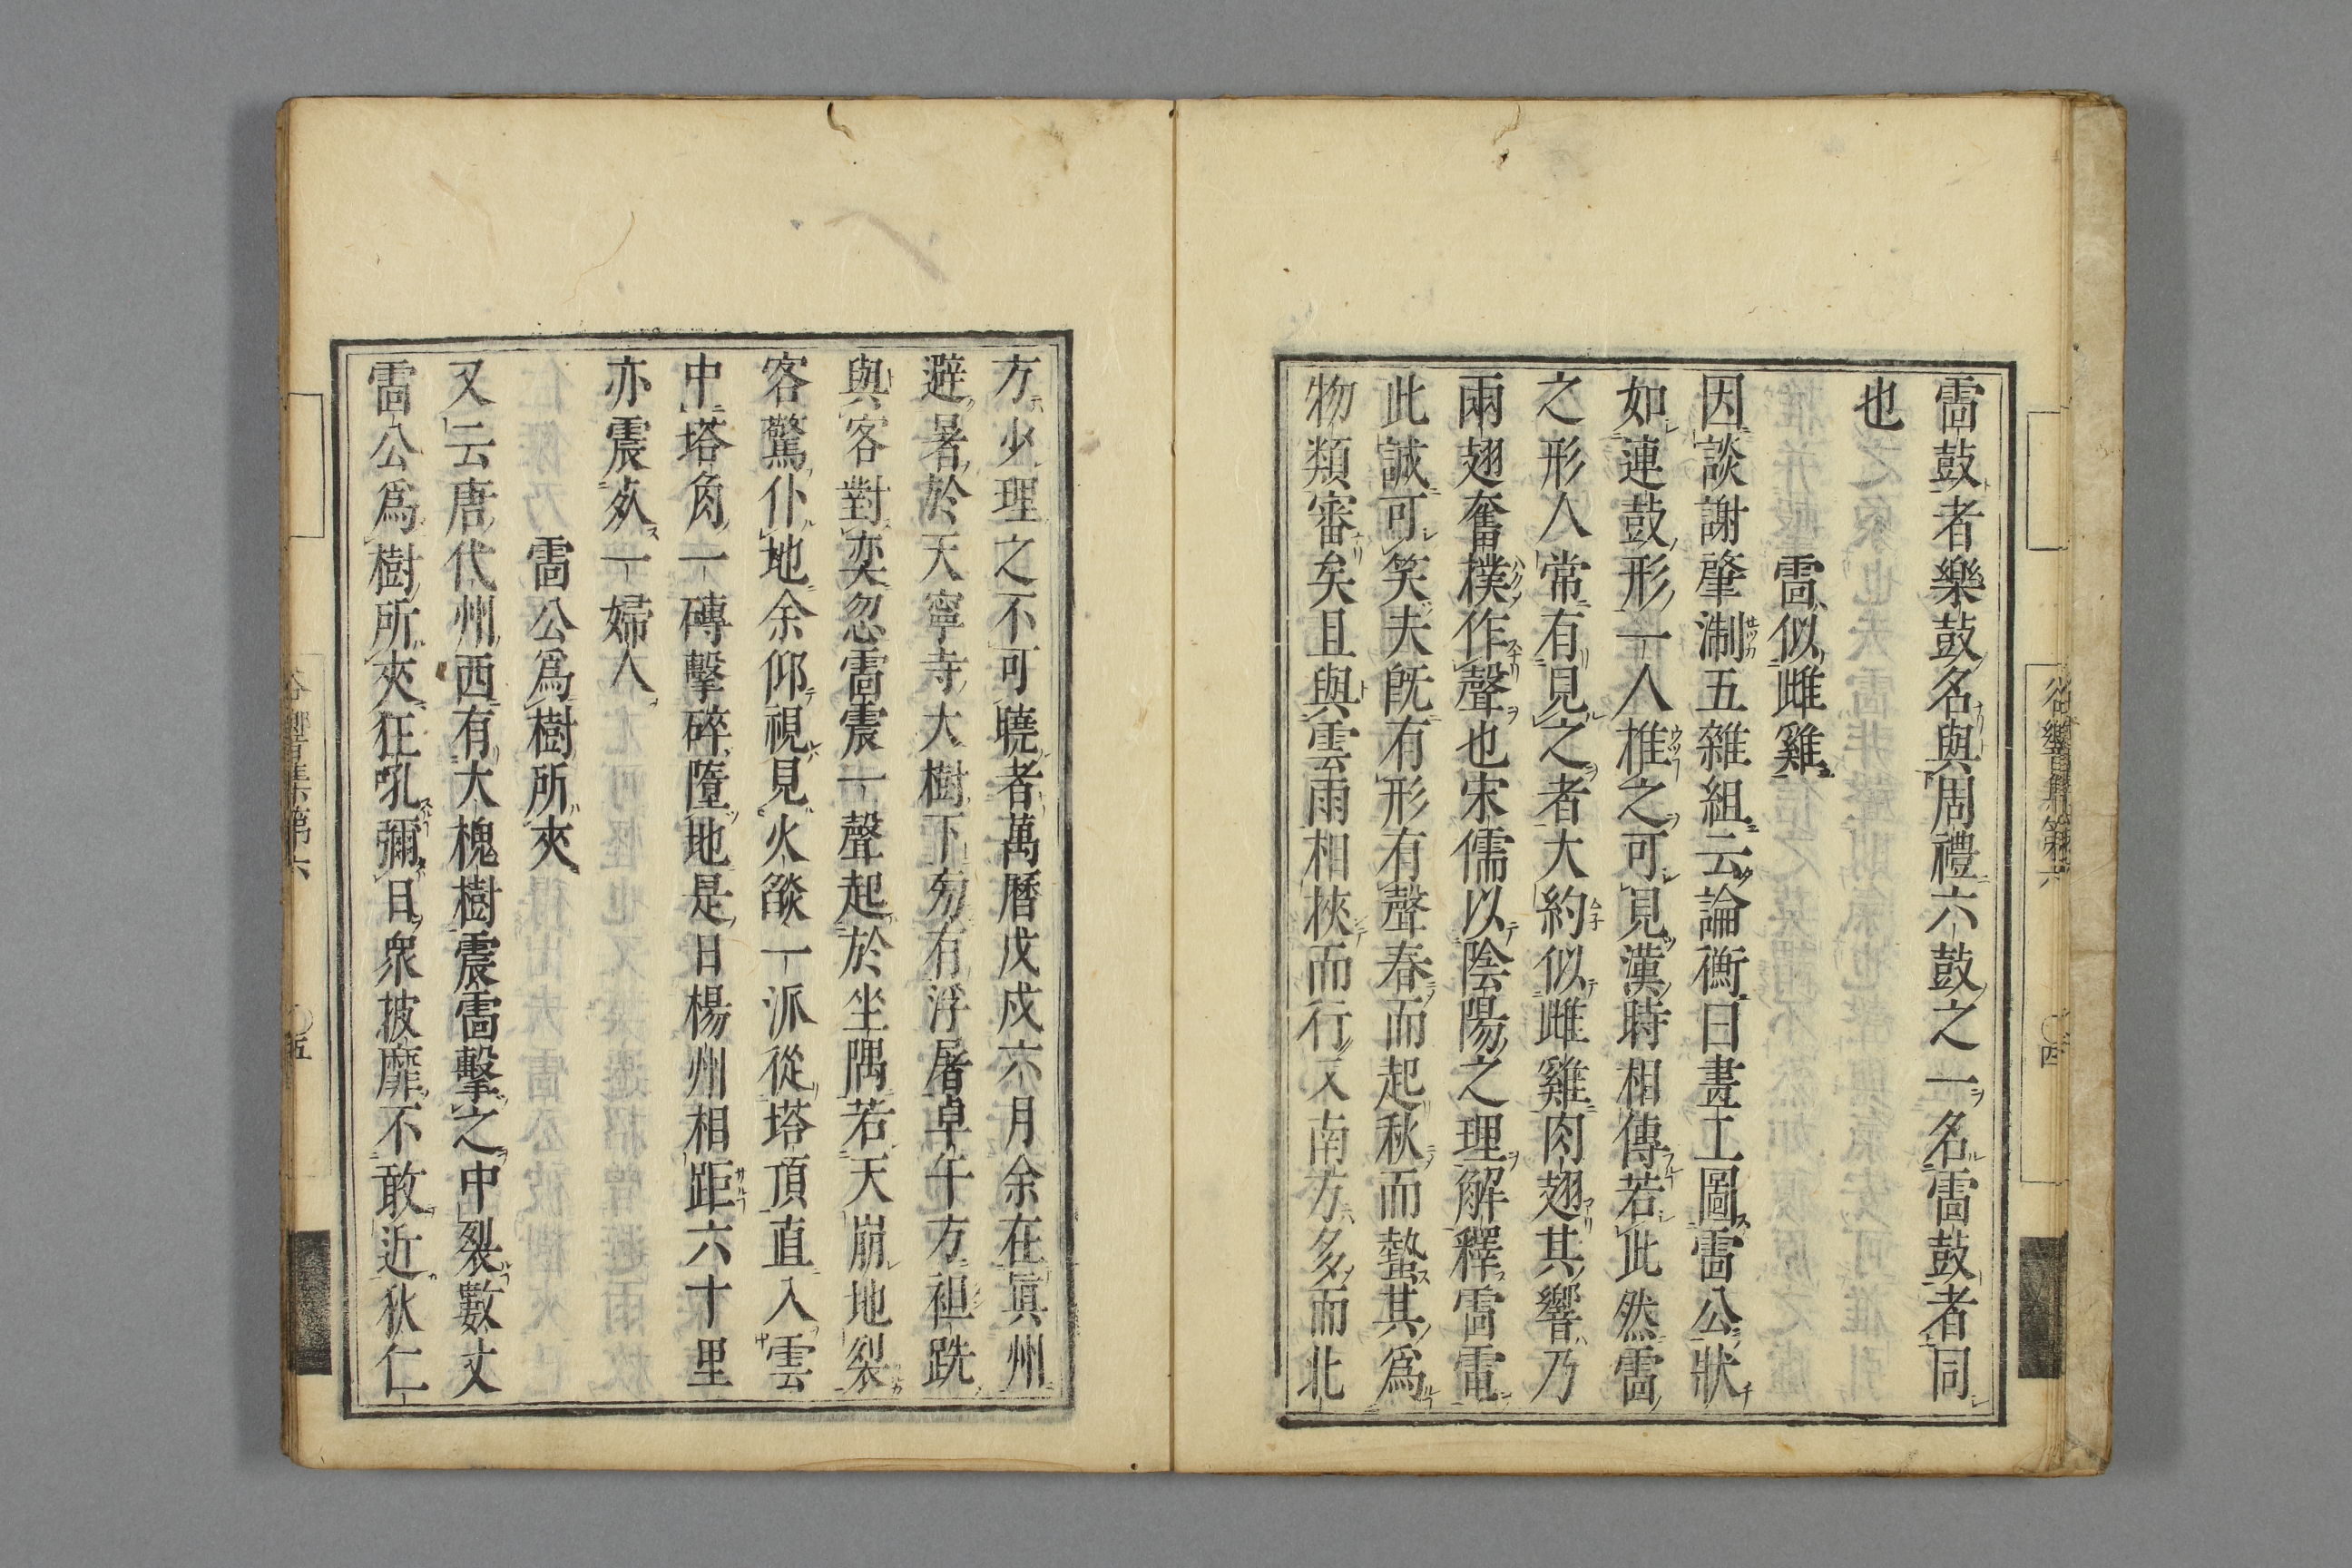 雷鼓者樂鼓名與周禮六鼓之一名雷鼓者同
也
雷似雌雞
因談謝肇淛五雜組云論衡曰畫工圖雷公狀
如連鼓形一人椎之可見漢時相傳若此然雷
之形人常有見之者大約似雌雞肉翅其響乃
兩翅奮撲作聲也宋儒以陰陽之理解釋雷電
此誠可笑夫既有形有聲春而起秋而蟄其爲
物類審矣且與雲雨相挾而行又南方多而北
方少理之不可曉者萬曆戊戌六月余在眞州
避暑於天寧寺大樹下旁有浮屠卓午方袒跣
與客對奕忽雷震一聲起於坐隅若天崩地裂
客驚仆地余仰視見火燄一派從塔頂直入雲
中塔角一磚擊碎墮地是日楊州相距六十里
亦震死一婦人
雷公爲樹所夾
又云唐代州西有大槐樹震雷擊之中裂數丈
雷公爲樹所夾狂吼彌日衆披靡不敢近狄仁
谷響集第六
四
谷響集第六
五